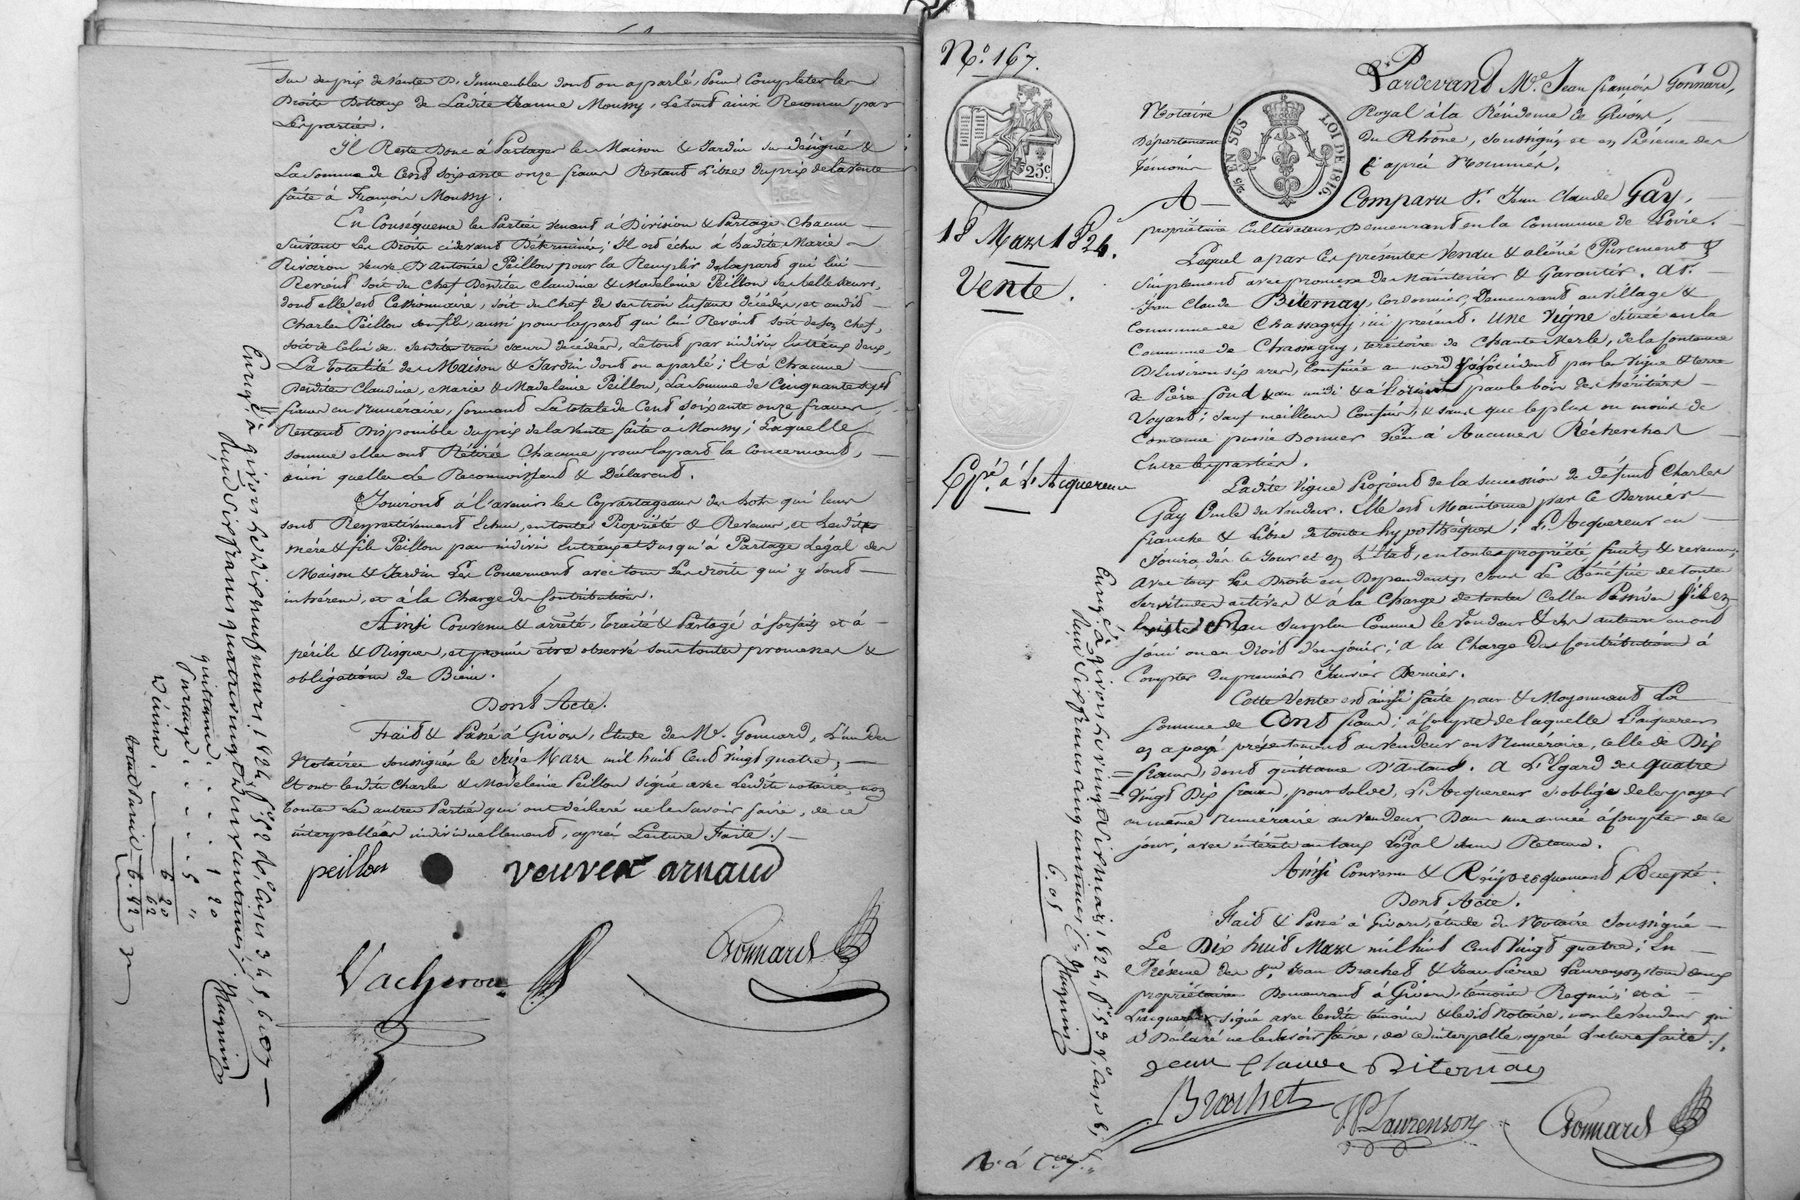 Sur du prix de vente D'Immeubles dont on a parlé, pour Completer les
Droits Dottaux de Ladite Jeanne Moussy, Le tout ainsi Reconnu par
Les parties.
Il Reste Donc à Partager les Maison & Jardin sus désignés &
La Somme de Cent soixante onze francs Restant Libre du prix de la Vente
faite à François Moussy.
En Conséquence les Parties venant à Division & Partage Chacune
Suivant les Droits cidevant Déterminés; Il est échu à Ladite Marie
Rivoiron veuve D'antoine Peillon pour la Remplir de la part qui lui
Revient soit du Chef Desdites Claudine & Madeleine Peillon ses belles sœurs,
dont elle est Cessionnaire, soit du Chef de ses trois Enfans décédés, et audit
Charles Peillon son fils, aussi pour la part qui lui Revient soit de son Chef,
soit de Celui de sesdites trois sœurs décédées, Le tout par indivis Entr'eux deux,
La totalité des Maison & Jardin dont on a parlé; Et à Chacune
Desdites Claudine, Marie & Madeleine Peillon, La somme de Cinquante sept
francs en Numéraire, formant La totale de Cent soixante onze francs
Restant Disponible du prix de la Vente faite à Moussy; Laquelle
somme elles ont Retirée Chacune pour la part la Concernant,
ainsi quelles Le Reconnoissent & Déclarent.
Jouiront à l'avenir les Copartageans des Lots qui leur
sont Respectivement échus, en toute Propriété & Revenus, et Lesdits
mère & fils Peillon par indivis Entr'eux et Jusqu'à Partage Légal des
Maison & Jardin Les Concernant avec tous Les droits qui y sont
inhérens, et à la Charge des Contributions.
Ainsi Convenu & arrêté, traité & Partagé à forfait et à
périls & Risques, et promis être observé sous toutes promesses &
obligations de Biens.
Dont Acte.
Fait & Passé à Givors, Etude de Me. Gonnard, L'un des
Notaires Soussignés le Seize Mars mil huit Cent vingt quatre,
Et ont lesdits Charles & Madeleine Peillon signé avec Lesdits notaires, non
toutes Les autres Parties qui ont déclaré ne le savoir faire, de ce
interpellées individuellement, après Lecture Faite./.
peillon
veuve arnaud
Vacheron
Gonnard
Enregé. à givors le dix neuf mars 1824, fo. 52 Ro. Cases 3 4 5 6 et 7
Reçu six francs quatrevingt deux centimes./.
quittance . . . 1 20
Partage . . . 5 "
6 20
Décime . 62
total Six 6.82
No. 167.
18 Mars 1824.
Vente.
Expé. à L'Acquereur
25c.
EN SUS
LOI DE 1816.
Pardevant Me. Jean François Gonnard,
Notaire Royal à la Résidence de Givors,
Département du Rhône, soussigné et en Présence des
témoins Ci après Nommés.
A Comparu Sr. Jean Claude Gay,
propriétaire Cultivateur, Demeurant en la Commune de Loire.
Lequel a par Ces présentes Vendu & aliéné Purement &
Simplement avec promesse de Maintenir & Garantir. à Sr.
Jean Claude Biternay, Cordonnier, Demeurant au Village &
Commune de Chassagny, ici présent. Une Vigne située en la
Commune de Chassagny, territoire de Chante Merle, de la Contenue
D'Environ six ares, Confinée au nord & à l'occident par les Vigne & terre
de Pierre fond & au midi & à l'orient par le bois des héritiers
Voyant; sauf meilleurs Confins, & sans que le plus ou moins de
Contenue puisse Donner Lieu à Aucunes Récherches
Entre les parties.
Ladite Vigne Provient de la succession de Défunt Charles
Gay Oncle du Vendeur. Elle est Maintenue par Ce Dernier
franche & Libre de toutes hypothèques; L'Acquereur en
Jouira dès ce Jour et en L'Etat, en toutes propriété fruits & revenus,
avec tous Les Droits en Dependants, sous Le Bénéfice de toute
Servitudes actives & à la Charge de toutes Celles Passives s'il en
Existe; au surplus Comme le Vendeur & ses auteurs en ont
joui ou eu Droit d'en jouir; à la Charge des Contributions à
Compter du premier Janvier Dernier.
Cette Vente est ainsi faite pour & Moyennant La
Somme de Cent francs; à Compte de laquelle L'acquereur
en a payé présentement au Vendeur en Numéraire, Celle de Dix
francs, dont quittance D'autant. A L'Egard des quatre
Vingt Dix francs, pour solde, L'Acquereur s'oblige de les payer
en même Numéraire au Vendeur Dans une année à Compter de ce
jour, avec intérêts au taux Légal sans Retenue.
Ainsi Convenu & Réciproquement Accepté.
Dont Acte.
Fait & Passé à Givors, étude du Notaire Soussigné
Le Dix huit Mars mil huit Cent Vingt quatre; En
Présence des Srs. Jean Brachet & Jean Pierre Laurenson tous deux
propriétaires Demeurant à Givors, témoins Requis; et à
L'acquereur signé avec lesdits témoins & ledit Notaire, non le Vendeur qui
a Déclaré ne le savoir faire, de ce interpellé, après Lecture faite./.
Jean Claude Biternay
Brachet
JP Laurenson
Gonnard
Enregé. à givors le vingt six mars 1824, fo. 59 Vo. Case 6,
Reçu six francs cinq centimes
6.05